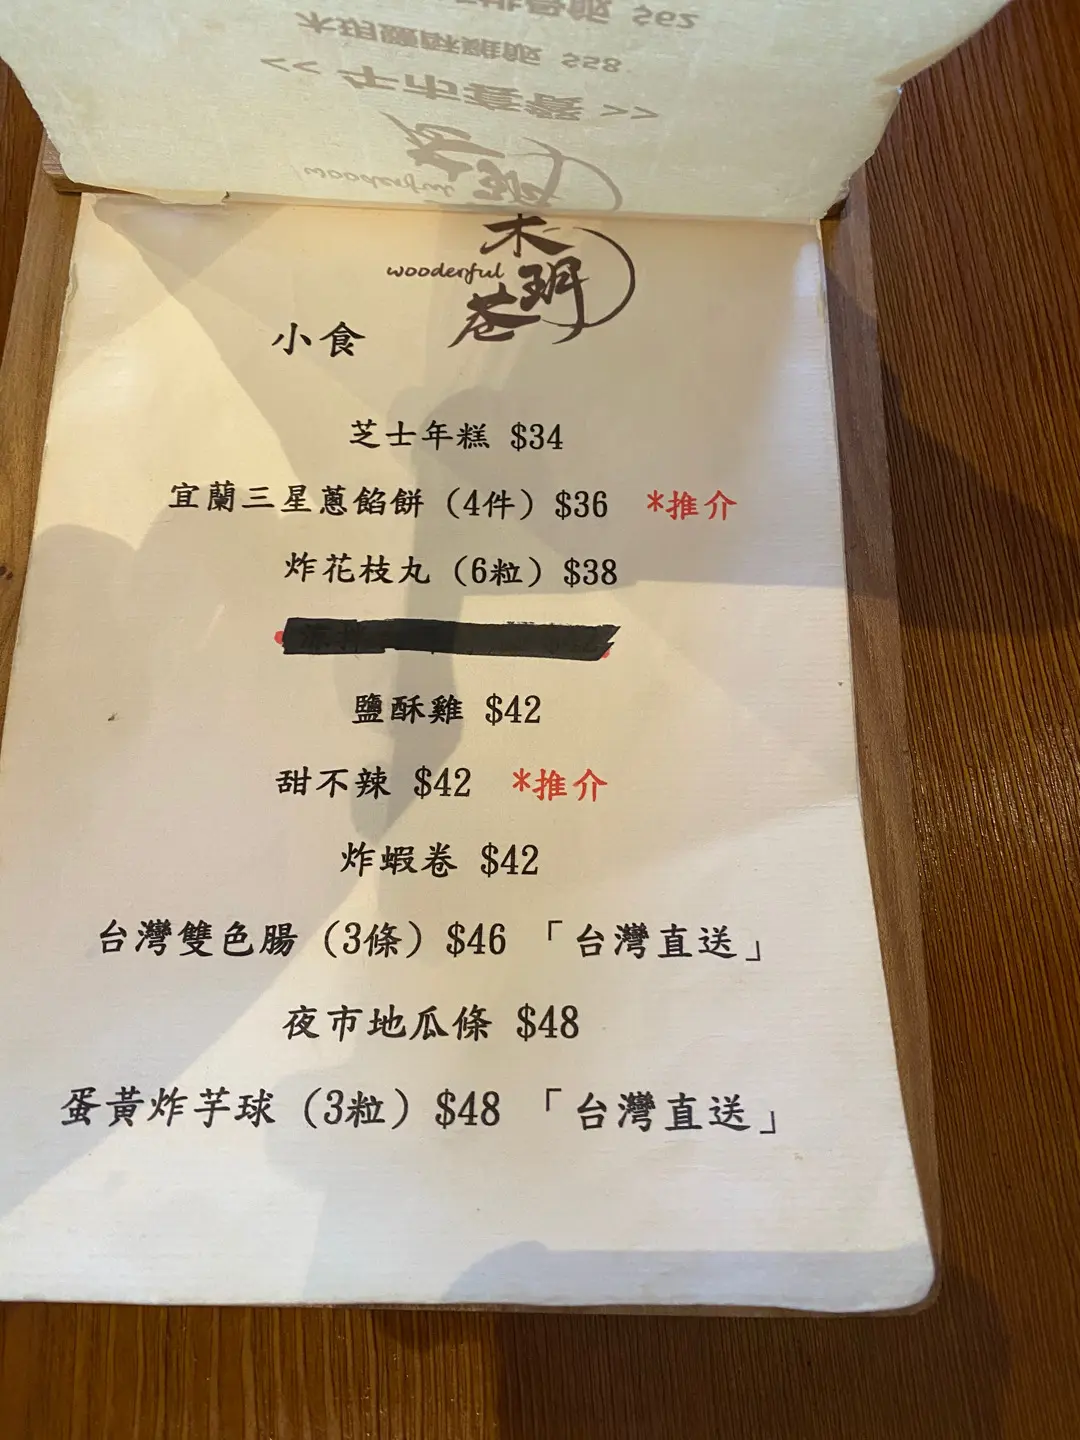 $62
木玥鹽酥雞飯 $58
<< 午市套餐 >>
wooderful
木
wooderful 玥
巷
小食
芝士年糕 $34
宜蘭三星蔥餡餅（4件）$36 *推介
炸花枝丸（6粒）$38
鹽酥雞 $42
甜不辣 $42 *推介
炸蝦卷 $42
台灣雙色腸（3條）$46 「台灣直送」
夜市地瓜條 $48
蛋黃炸芋球（3粒）$48 「台灣直送」